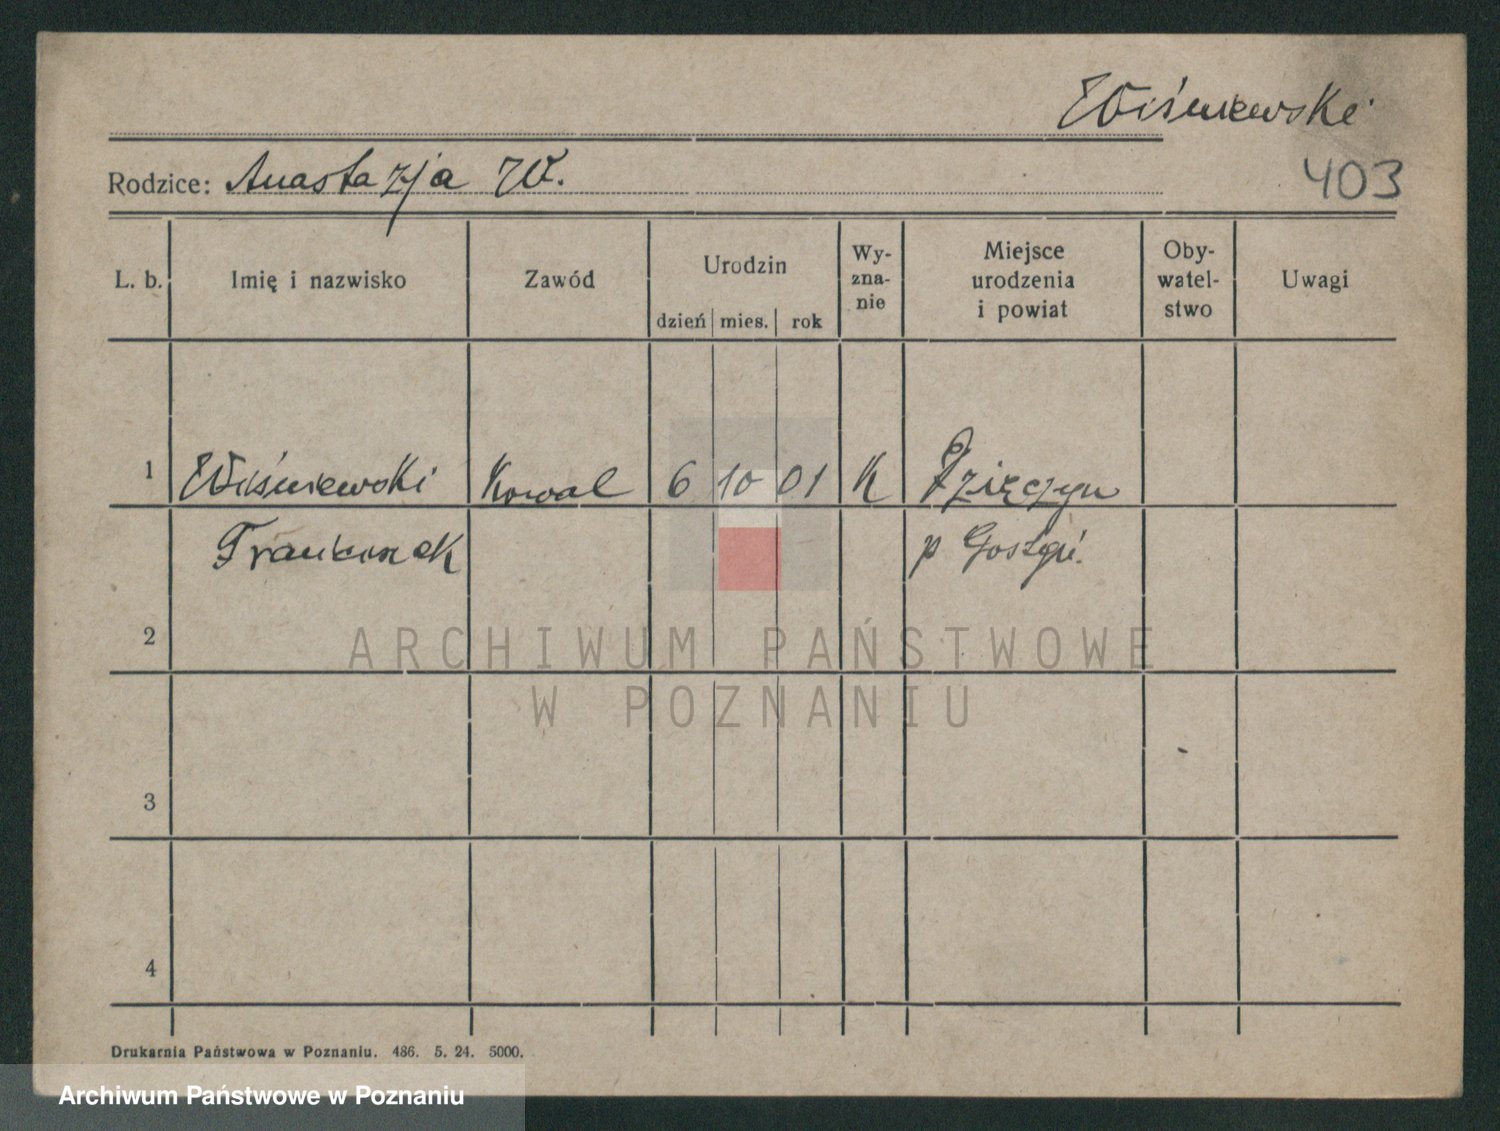 Wiśniewski
Rodzice: Anastazja W.
403
L. b. Imię i nazwisko Zawód Urodzin dzień mies. rok Wy-zna-nie Miejsce urodzenia i powiat Oby-watel-stwo Uwagi
1 Wiśniewski Kowal 6 10 01 K Dzięczyn
Franciszek p Gostyń.
2
ARCHIWUM PAŃSTWOWE
W POZNANIU
3
4
Drukarnia Państwowa w Poznaniu. 486. 5. 24. 5000.
Archiwum Państwowe w Poznaniu